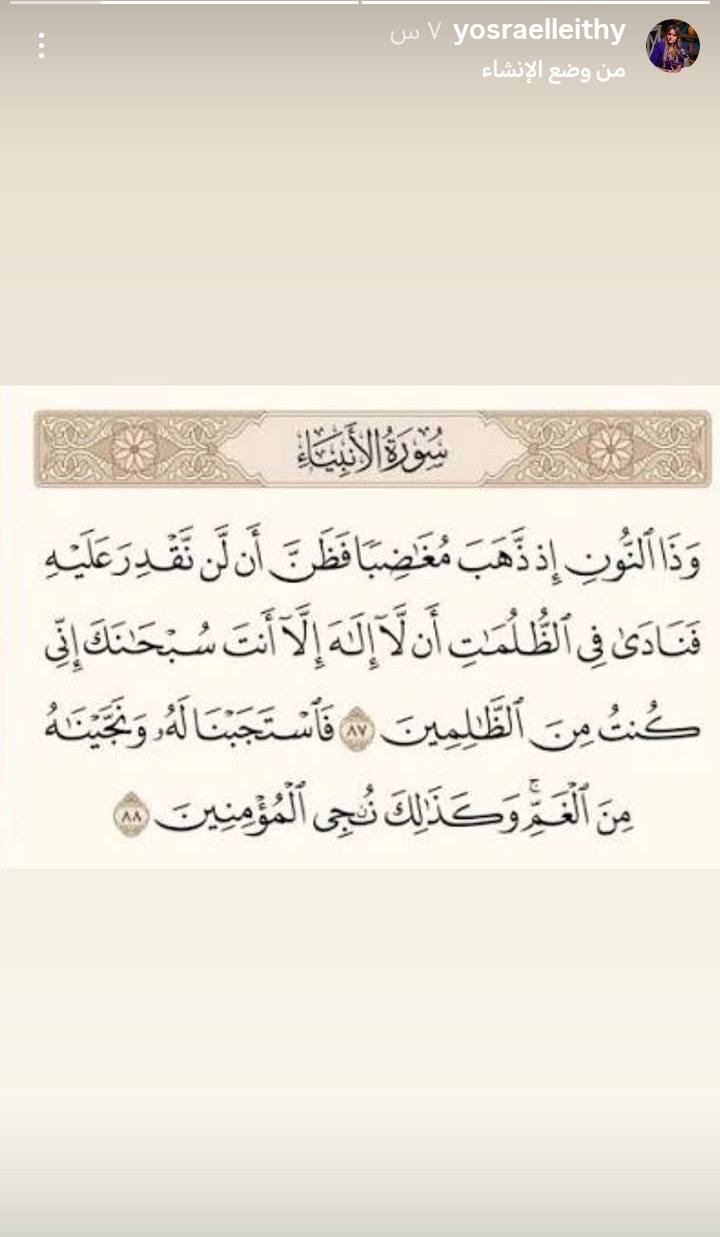 yosraelleithy ٧ س
من وضع الإنشاء
سُورَةُ الأَنبِيَاءِ
وَذَا ٱلنُّونِ إِذ ذَّهَبَ مُغَٰضِبًا فَظَنَّ أَن لَّن نَّقْدِرَ عَلَيْهِ
فَنَادَىٰ فِى ٱلظُّلُمَٰتِ أَن لَّآ إِلَٰهَ إِلَّآ أَنتَ سُبْحَٰنَكَ إِنِّى
كُنتُ مِنَ ٱلظَّٰلِمِينَ ٨٧ فَٱسْتَجَبْنَا لَهُۥ وَنَجَّيْنَٰهُ
مِنَ ٱلْغَمِّ ۚ وَكَذَٰلِكَ نُۨجِى ٱلْمُؤْمِنِينَ ٨٨